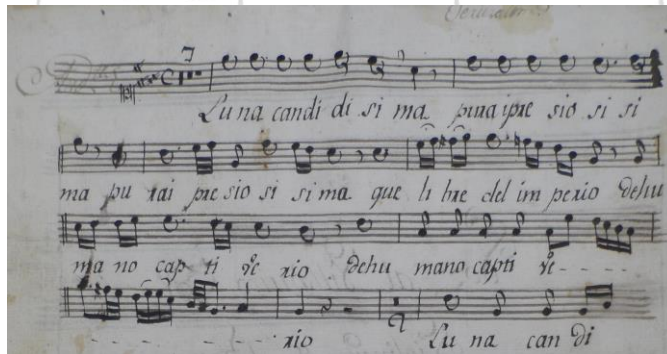 7
Luna candi di si ma pura ipre sio si si
ma pu rai pre sio si si ma que li bre del im perio dehu
ma no cap ti ve rio dehu mano capti ve - - - -
- - - - - - - - rio 2 Lu na can di